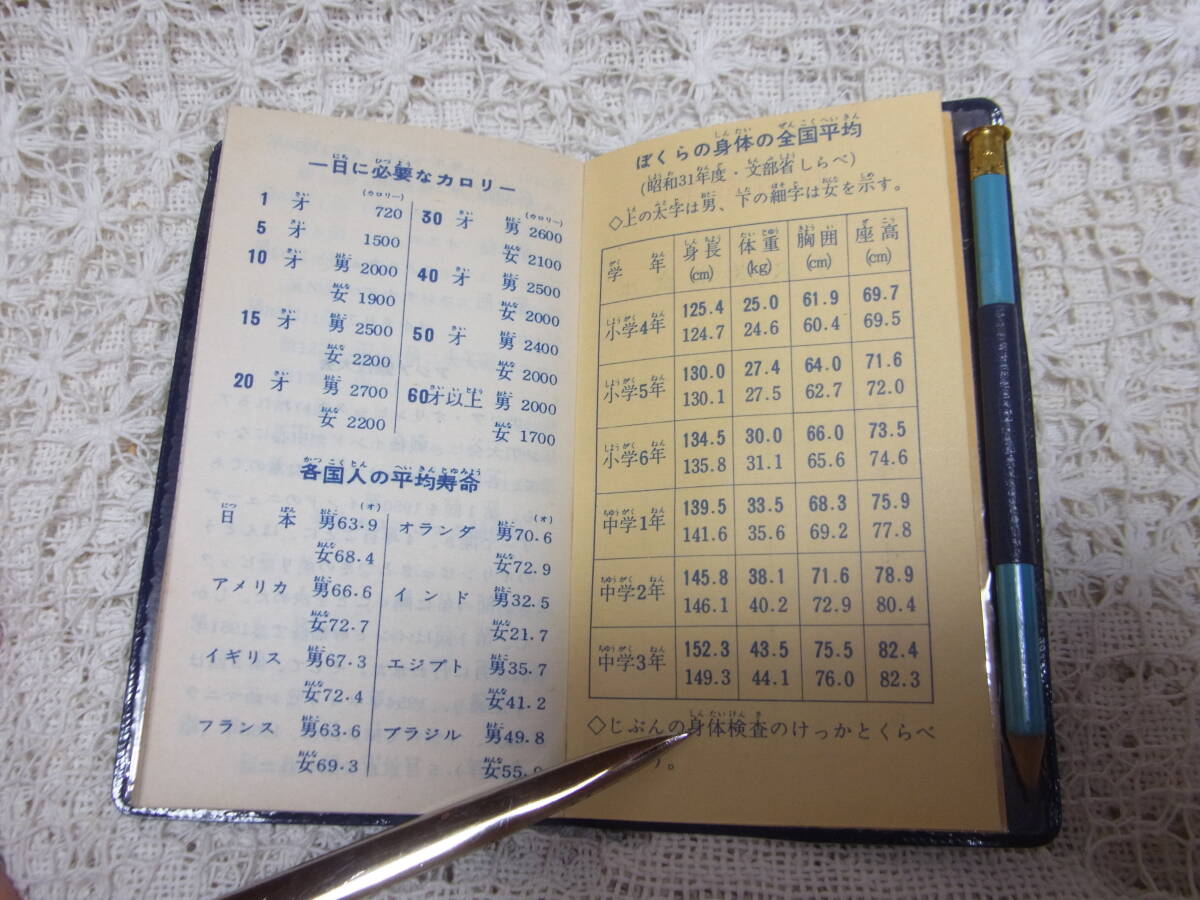 一日に必要なカロリー
(カロリー) (カロリー)
1 才 720 30 才 男 2600
5 才 1500 女 2100
10 才 男 2000 40 才 男 2500
女 1900 女 2000
15 才 男 2500 50 才 男 2400
女 2200 女 2000
20 才 男 2700 60才以上 男 2000
女 2200 女 1700
各国人の平均寿命
(才) (才)
日本 男63.9 オランダ 男70.6
女68.4 女72.9
アメリカ 男66.6 インド 男32.5
女72.7 女21.7
イギリス 男67.3 エジプト 男35.7
女72.4 女41.2
フランス 男63.6 ブラジル 男49.8
女69.3 女55.
ぼくらの身体の全国平均
(昭和31年度・文部省しらべ)
◇上の太字は男、下の細字は女を示す。
学年 身長(cm) 体重(kg) 胸囲(cm) 座高(cm)
小学4年 125.4 25.0 61.9 69.7
124.7 24.6 60.4 69.5
小学5年 130.0 27.4 64.0 71.6
130.1 27.5 62.7 72.0
小学6年 134.5 30.0 66.0 73.5
135.8 31.1 65.6 74.6
中学1年 139.5 33.5 68.3 75.9
141.6 35.6 69.2 77.8
中学2年 145.8 38.1 71.6 78.9
146.1 40.2 72.9 80.4
中学3年 152.3 43.5 75.5 82.4
149.3 44.1 76.0 82.3
◇じぶんの身体検査のけっかとくらべ
う。